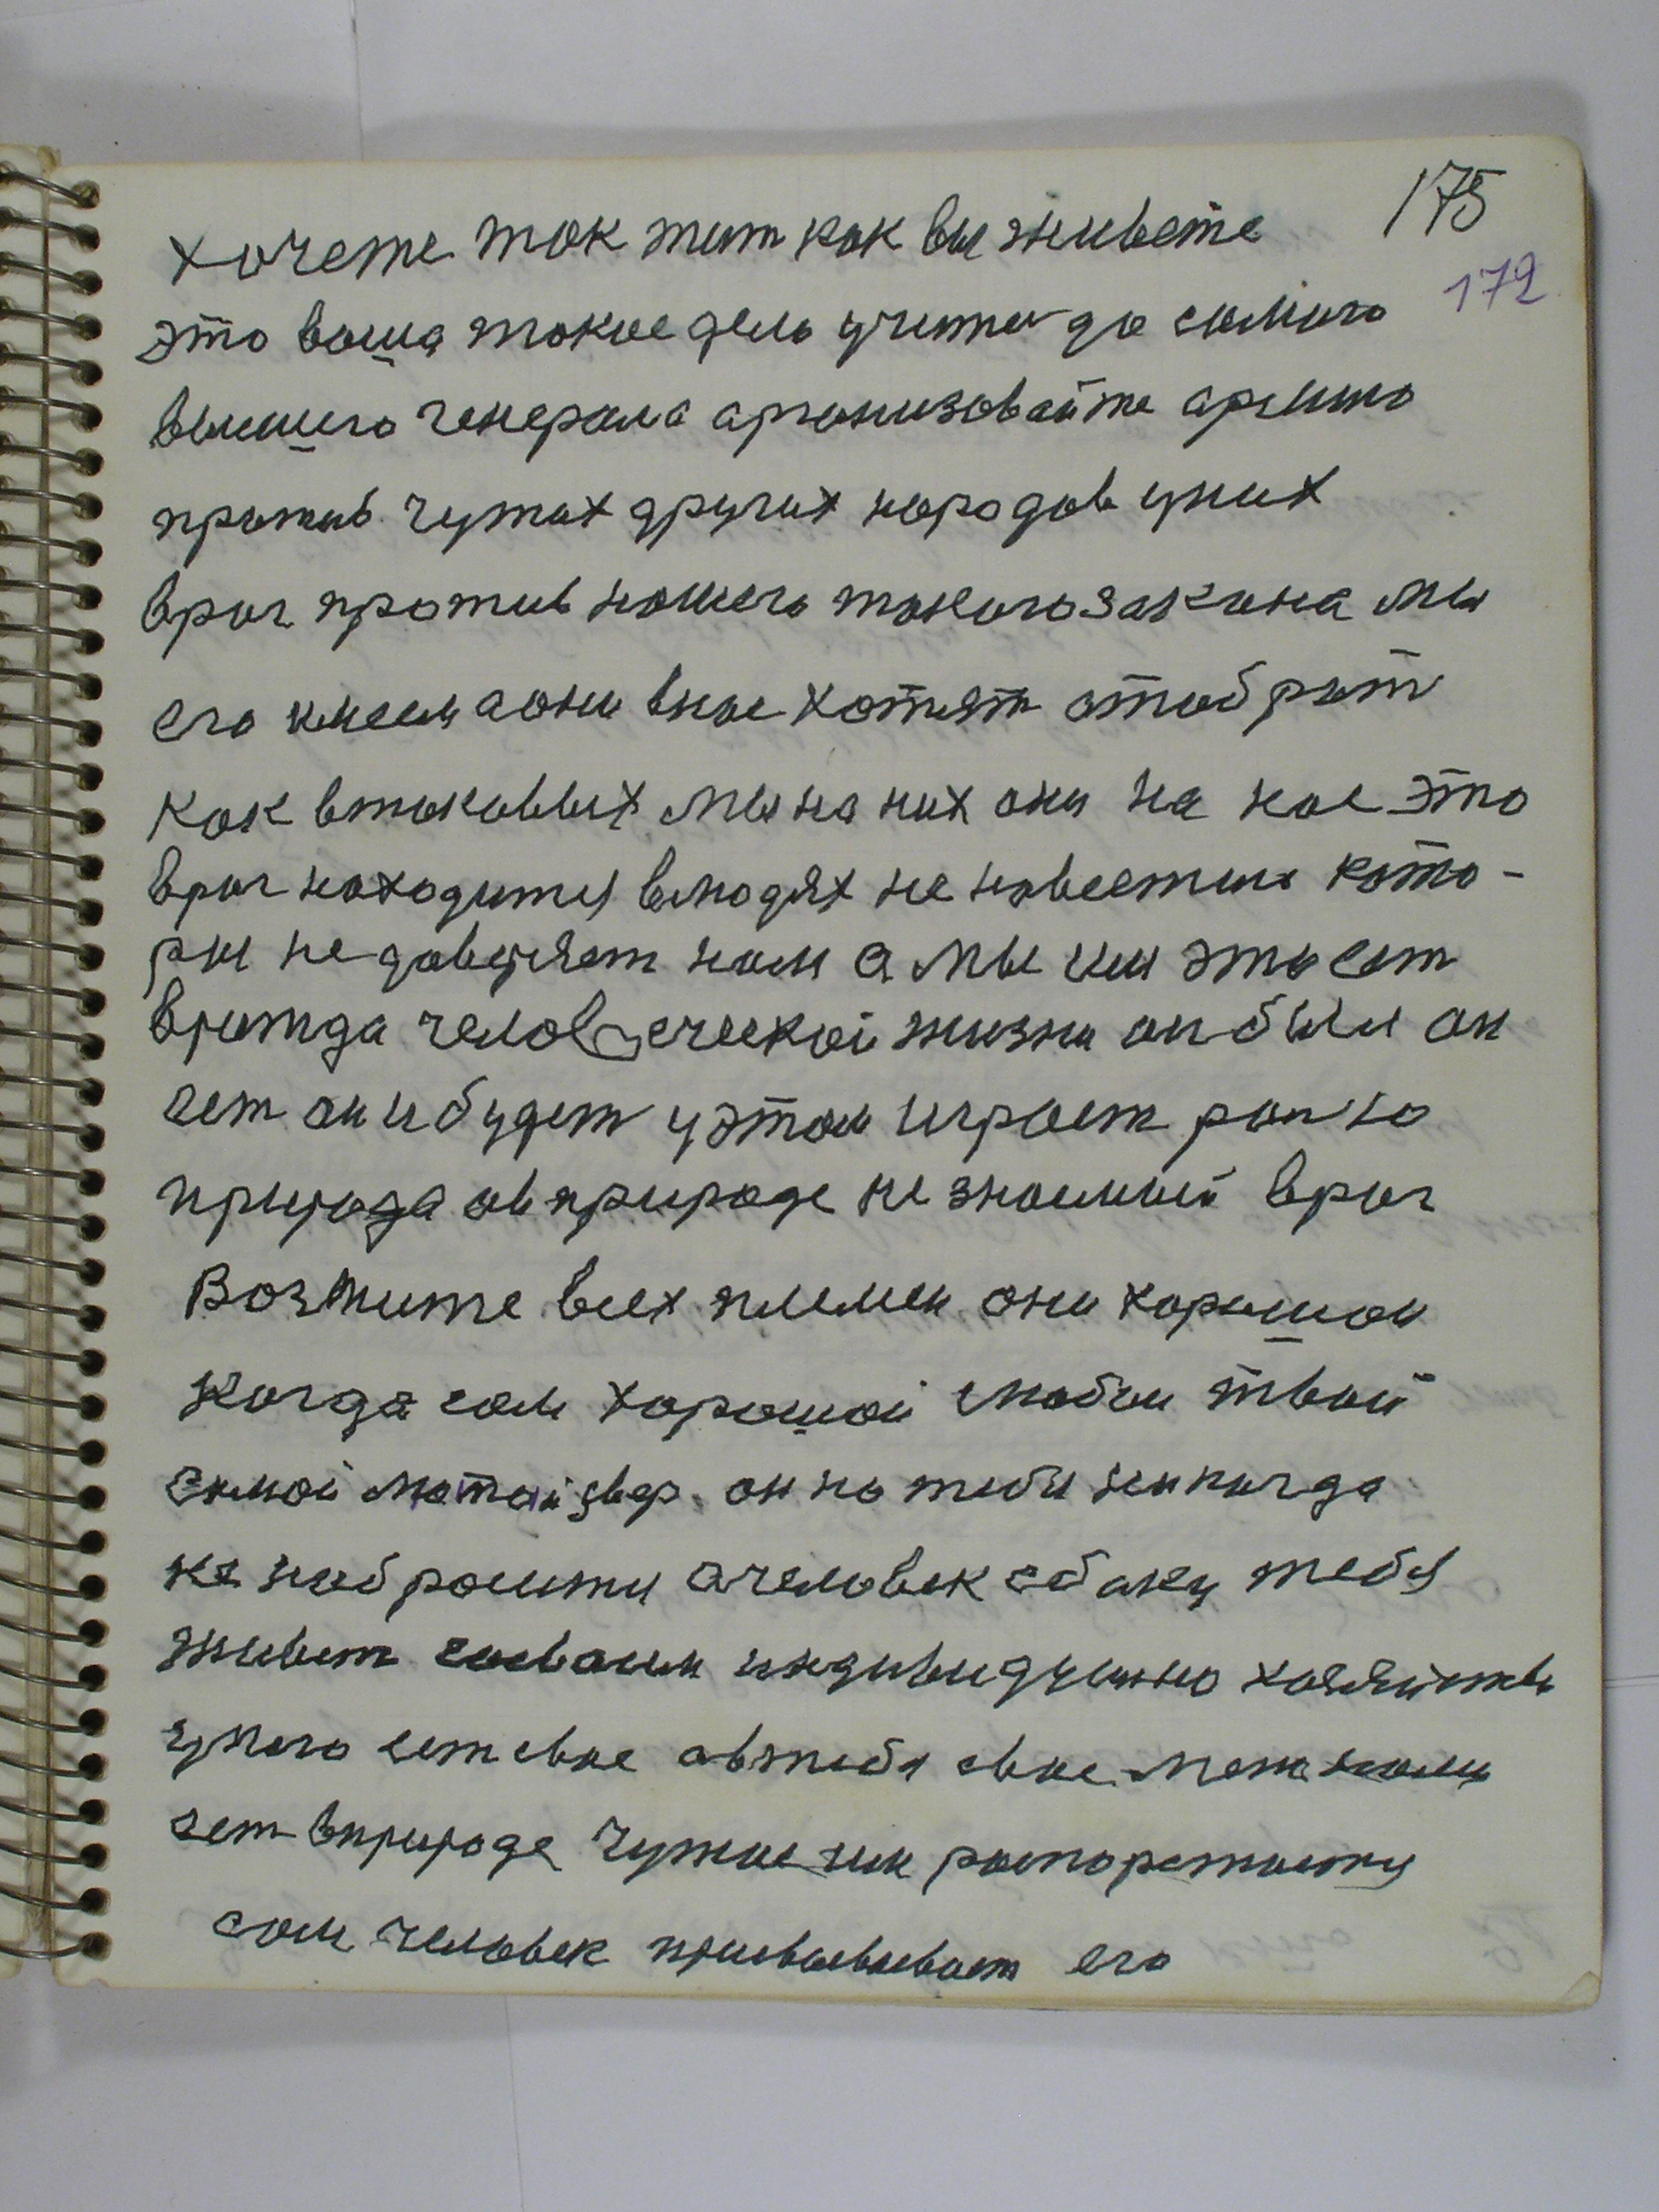 175
хочете так жит как вы живете
172
это ваша такое дело учитеся до самого
высшего генерала арганизовайте армию
против чужих других народов уних
враг против нашего такого закона мы
его имеем аони внас хотят атабрат
как втаковых мы на них они на нас это
враг находится влюдях не навестию кото-
ры не даверяет нам а мы им это ест
вражда человеческой жизни он был он
ест он и будет у этом играет ролю
природа ав природе не знаемый враг
Возмите всех племен они хорошои
когда сам хорошой любои твой
самой лютай звер он на тебя никагда
не набросится ачеловек сбаку тебя
живет сосваим индивидушно хозяйство
унего ест свое автебя свое
ест вприроде Чужое им распоряжаится
сам человек присваевает его